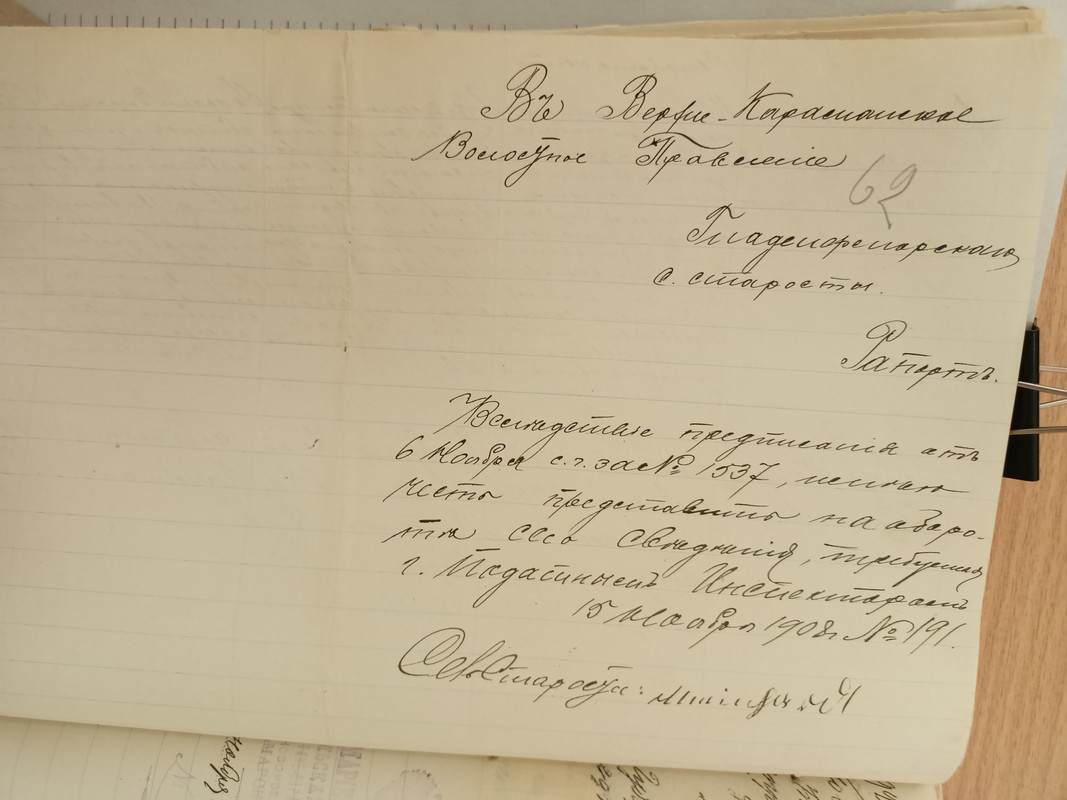 Въ Верхне-Карасианское
Волостное Правленіе
62
Гнаденфельдскаго
с. старосты.
Рапортъ.
Вслѣдствіе предписанія отъ
6 Ноября с.г. за № 1537, имѣю
честь представить на оборо-
тѣ сего Свѣдѣнія, требуемыя
г. Податнымъ Инспекторомъ
15 Ноября 1908 г. № 191.
Сельстароста: